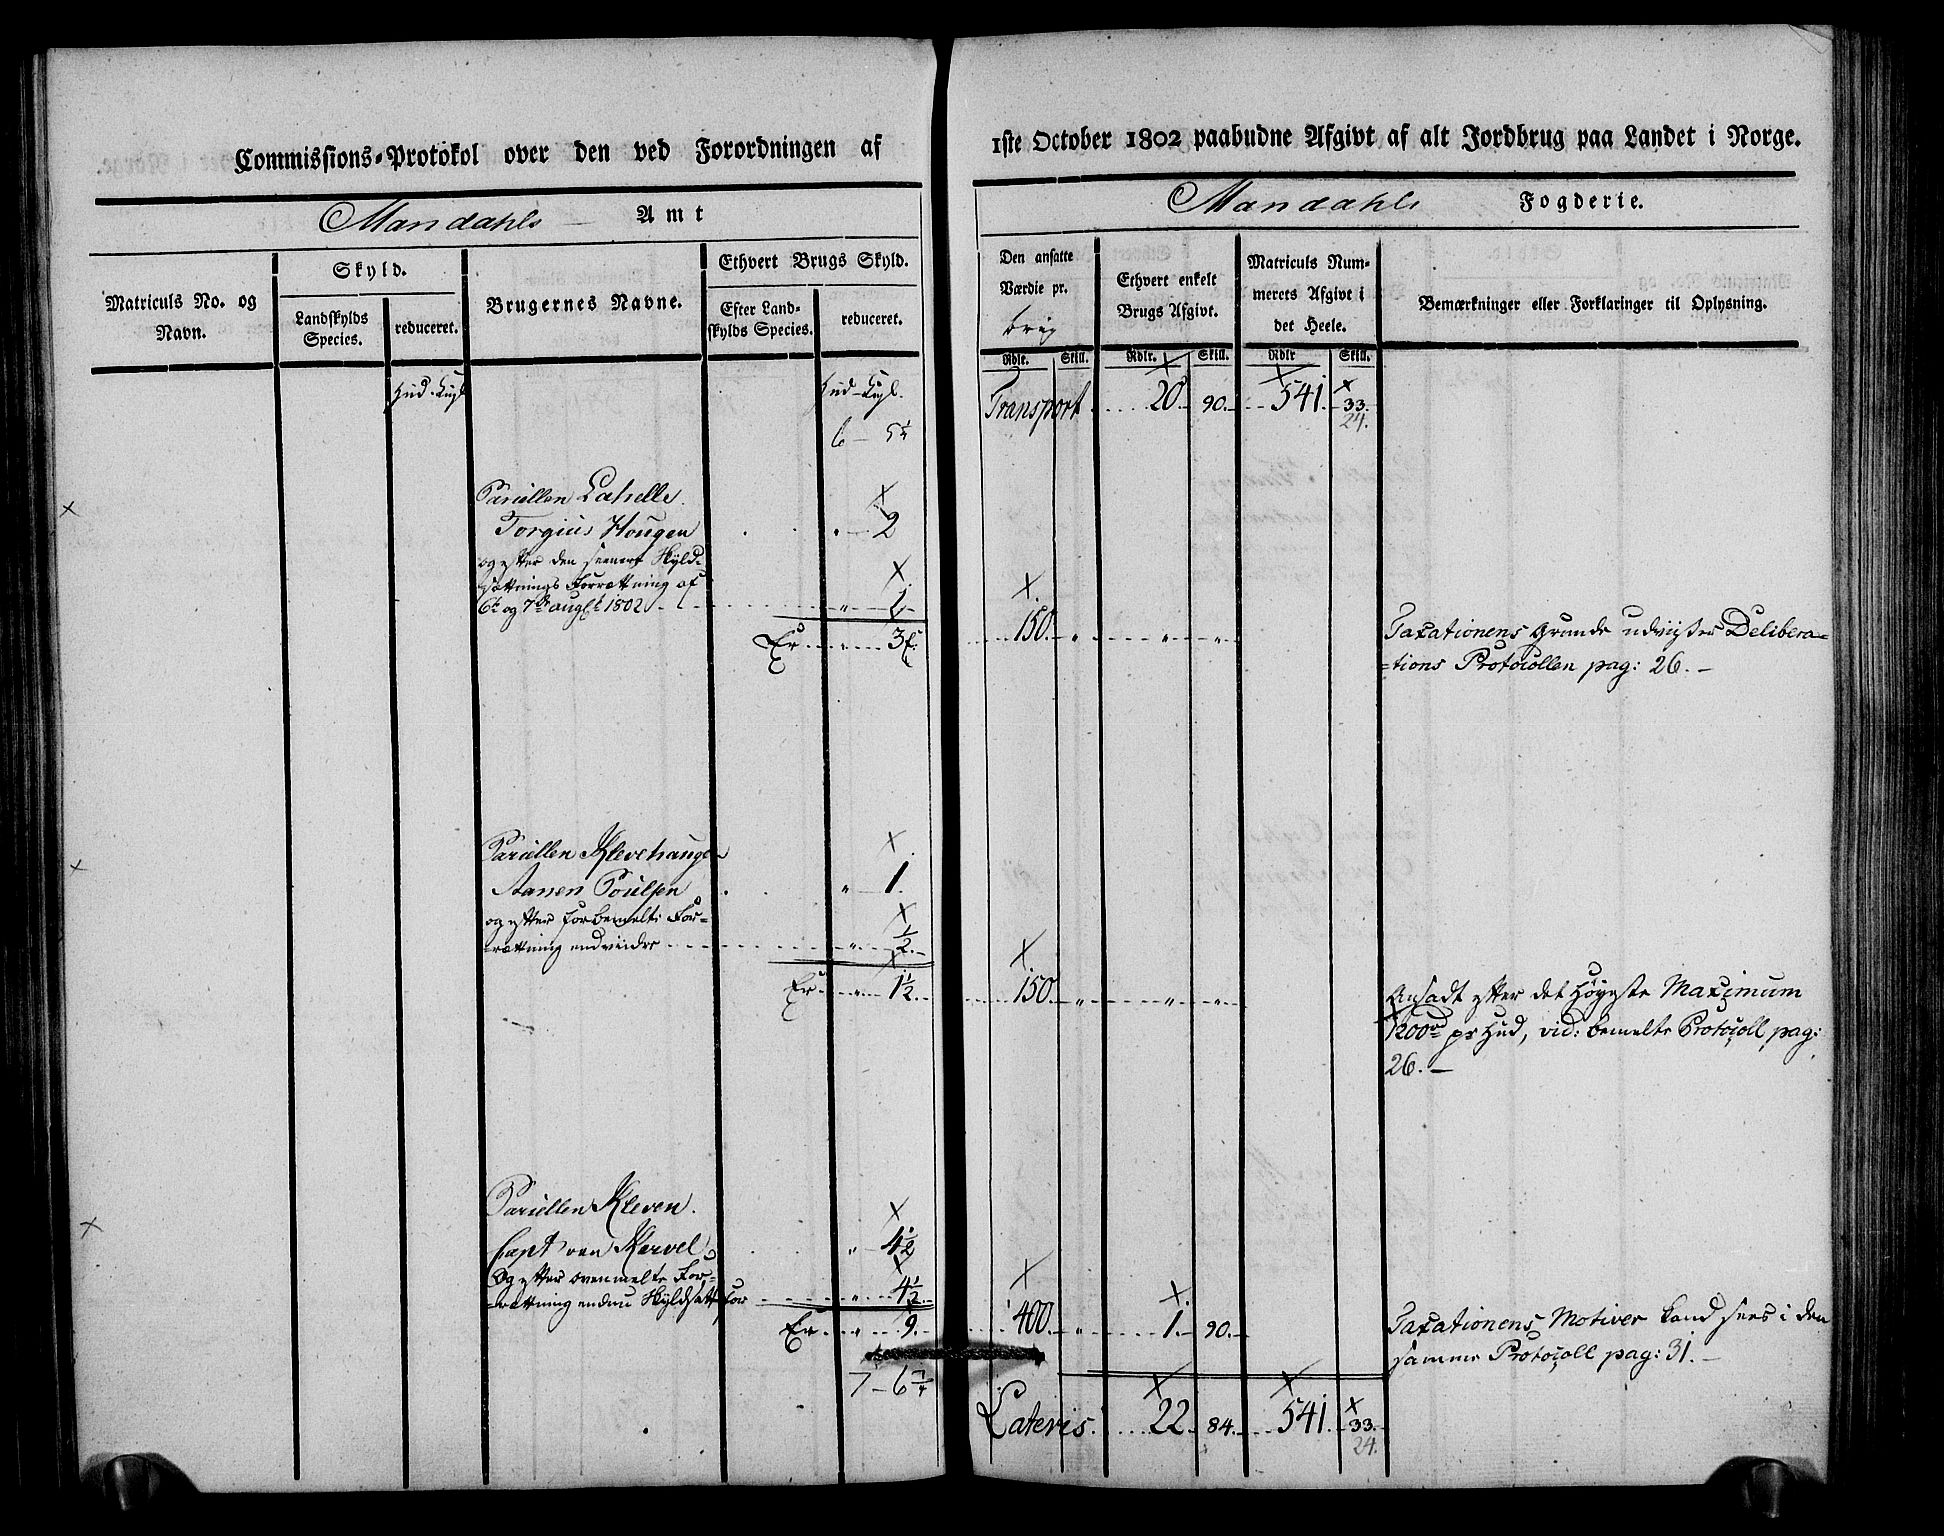 Commissions-Protokol over den ved Forordningen af
1ste October 1802 paabudne Afgivt af alt Jordbrug paa Landet i Norge.
Mandahls Amt
Mandahls Fogderie.
Matriculs No. og Navn.
Skyld.
Landskylds Species.
reduceret.
Brugernes Navne.
Ethvert Brugs Skyld.
Efter Landskylds Species.
reduceret.
Den ansatte Værdie pr.
Brug
Ethvert enkelt Brugs Afgivt.
Matriculs Nummerets Afgivt i det Heele.
Bemærkninger eller Forklaringer til Oplysning.
Rdlr. Skill. Rdlr. Skill. Rdlr Skill.
Hud-
Hud-
Transport 20. 90. 541. 33.
24.
Parcellen Lahelle
Torgius Hougen 2
og efter den seenere Skyld-
sættnings Forrettning af
6te og 7de Augst 1802
Er 3
150
Taxationens Grunde udviser Delibera-
tions Protocollen pag: 26.
Parcellen Klevehaugen
Aanen Poulsen 1.
og efter forbemelte For-
rettning endvidre 1/2.
Er 1 1/2
150
Ansadt efter det Høyeste Maximum
1200rd pr Hud, vid: bemelte Protocoll pag:
26.
Parcellen Kleven.
Capt van Kervel 4 1/2
Og efter ovenmelte For-
rettning endnu Skyldsatt for 4 1/2
Er 9.
400. 1. 90.
Taxationens Motiver kand sees i den
samme Protocoll pag: 31.
Lateris 22. 84. 541. 33.
24.